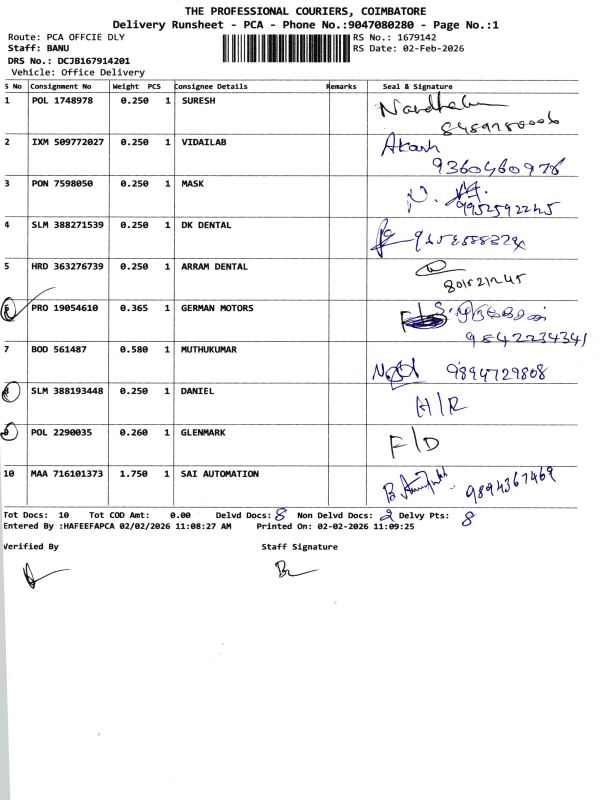 THE PROFESSIONAL COURIERS, COIMBATORE
Delivery Runsheet - PCA - Phone No.:9047080280 - Page No.:1
Route: PCA OFFCIE DLY RS No.: 1679142
Staff: BANU RS Date: 02-Feb-2026
DRS No.: DCJB167914201
Vehicle: Office Delivery
S No Consignment No Weight PCS Consignee Details Remarks Seal & Signature
1 POL 1748978 0.250 1 SURESH
2 IXM 509772027 0.250 1 VIDAILAB Akash
9360460976
3 PON 7598050 0.250 1 MASK
9952592245
4 SLM 388271539 0.250 1 DK DENTAL
5 HRD 363276739 0.250 1 ARRAM DENTAL
6 PRO 19054610 0.365 1 GERMAN MOTORS
9842234341
7 BOD 561487 0.580 1 MUTHUKUMAR 9894729808
8 SLM 388193448 0.250 1 DANIEL H/R
9 POL 2290035 0.260 1 GLENMARK F/D
10 MAA 716101373 1.750 1 SAI AUTOMATION 9894367469
Tot Docs: 10 Tot COD Amt: 0.00 Delvd Docs: 8 Non Delvd Docs: 2 Delvy Pts: 8
Entered By :HAFEEFAPCA 02/02/2026 11:08:27 AM Printed On: 02-02-2026 11:09:25
Verified By Staff Signature